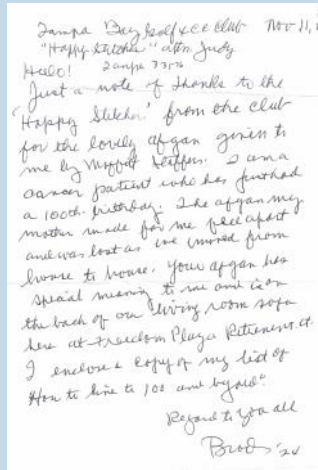 Tampa Bay Golf & CC Club Nov 11,
"Happy Stitcher" attn Judy
Hello! Tampa 33576
Just a note of thanks to the
"Happy Stitcher" from the club
for the lovely afgan given to
me by Moffitt Staffers. I am a
cancer patient who has just had
a 100th birthday. The afgan my
mother made for me fell apart
and was lost as we moved from
house to house. Your afgan has
special meaning to me and is on
the back of our living room sofa
here at Freedom Plaza Retirement
I enclose a copy of my list of
How to live to 100 and beyond".
Regard to you all
'24